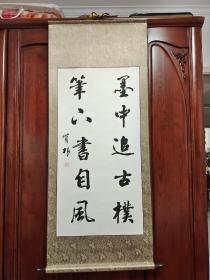 墨中追古樸
筆下書自風